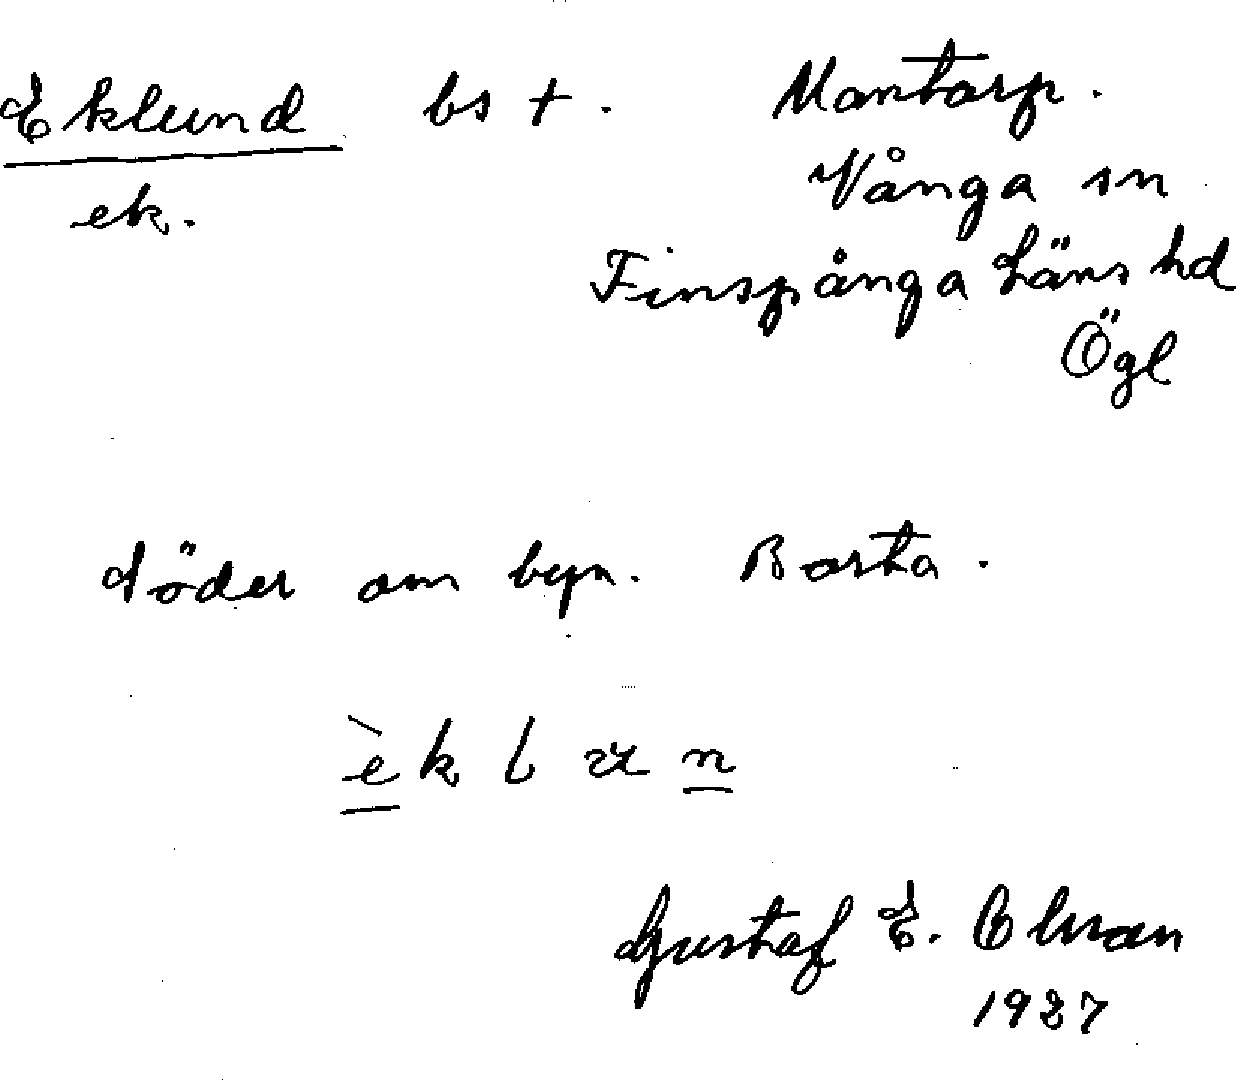 Eklund bs † . Mantorp .
ek. Vånga sn
Finspånga Läns hd
Ögl
Söder om byn. Borsta .
èk l u n
Gustaf E. Olsson
1927